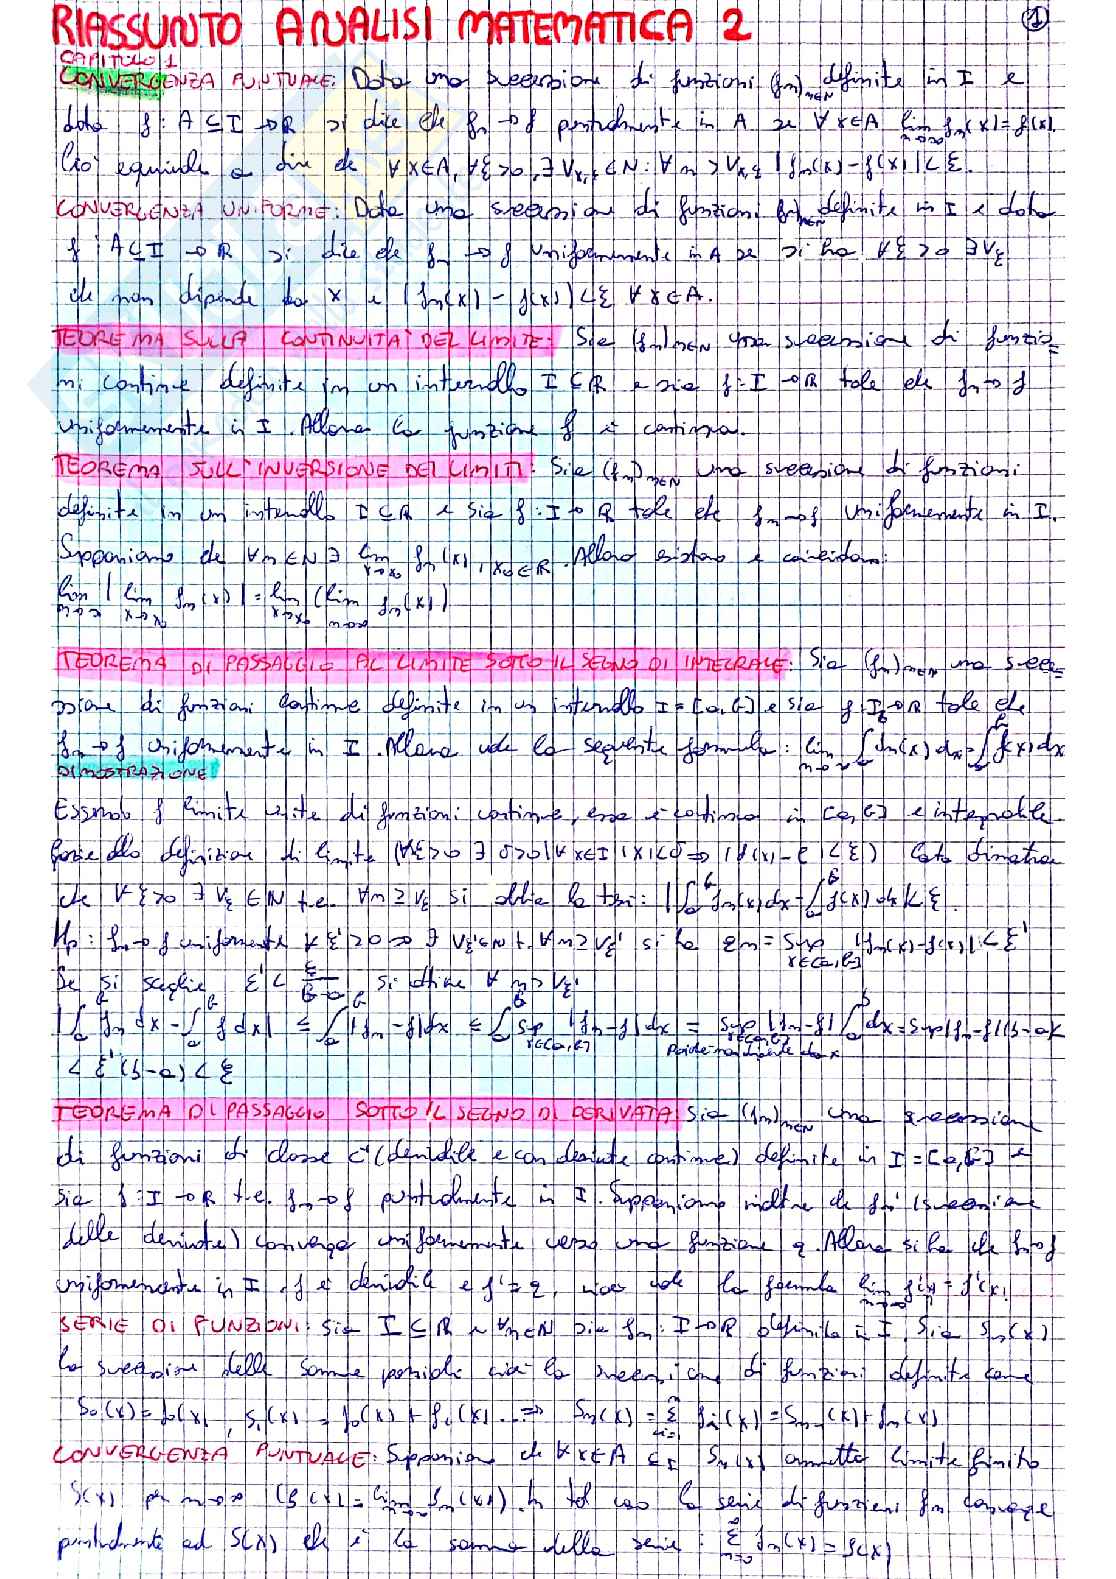 RIASSUNTO ANALISI MATEMATICA 2 1
CAPITOLO 1
CONVERGENZA PUNTUALE: Data una successione di funzioni (fn)n∈N definite in I e
data f: A⊆I→R si dice che fn→f puntualmente in A se ∀x∈A lim n→∞ fn(x)=f(x).
Ciò equivale a dire che ∀x∈A, ∀ε>0, ∃Vx,ε∈N: ∀n>Vx,ε |fn(x)-f(x)|<ε.
CONVERGENZA UNIFORME: Data una successione di funzioni (fn)n∈N definite in I e data
f: A⊆I→R si dice che fn→f uniformemente in A se si ha ∀ε>0 ∃Vε
che non dipende da x e |fn(x)-f(x)|<ε ∀x∈A.
TEOREMA SULLA CONTINUITA' DEL LIMITE: Sia (fn)n∈N una successione di funzio=
ni continue definite in un intervallo I⊆R e sia f: I→R tale che fn→f
uniformemente in I. Allora la funzione f è continua.
TEOREMA SULL'INVERSIONE DEI LIMITI: Sia (fn)n∈N una successione di funzioni
definite in un intervallo I⊆R e sia f: I→R tale che fn→f uniformemente in I.
Supponiamo che ∀n∈N ∃ lim x→x0 fn(x), x0∈R. Allora esistono e coincidono:
lim n→∞ (lim x→x0 fn(x)) = lim x→x0 (lim n→∞ fn(x))
TEOREMA DI PASSAGGIO AL LIMITE SOTTO IL SEGNO DI INTEGRALE: Sia (fn)n∈N una succe=
ssione di funzioni continue definite in un intervallo I=[a,b] e sia f: I→R tale che
fn→f uniformemente in I. Allora vale la seguente formula: lim n→∞ ∫ab fn(x)dx=∫ab f(x)dx
DIMOSTRAZIONE
Essendo f limite di funzioni continue, essa è continua in [a,b] e integrabile
definizione di limite (∀ε>0 ∃δ>0|∀x∈I |x|<δ⇒|f(x)-ℓ|<ε) dimostrare
che ∀ε>0 ∃Vε∈N t.c. ∀n≥Vε si abbia la tesi: |∫ab fn(x)dx-∫ab f(x)dx|<ε.
Hp: fn→f uniformemente ∀ε'>0 ∃Vε'∈N t. ∀n≥Vε' si ha εn=sup x∈[a,b] |fn(x)-f(x)|<ε'
Se si sceglie ε'<ε/(b-a) si ottiene ∀n>Vε'
|∫ab fn dx-∫ab f dx| ≤ ∫ab |fn-f|dx ≤ ∫ab sup x∈[a,b] |fn-f|dx = sup x∈[a,b] |fn-f| ∫ab dx=sup|fn-f|(b-a)<
Poiché non dipende da x
<ε'(b-a)<ε
TEOREMA DI PASSAGGIO SOTTO IL SEGNO DI DERIVATA: Sia (fn)n∈N una successione
di funzioni di classe C1 (derivabile e con derivate continue) definite in I=[a,b] e
sia f: I→R t.c. fn→f puntualmente in I. Supponiamo inoltre che fn' (successione
delle derivate) converga uniformemente verso una funzione g. Allora si ha che fn→f
uniformemente in I, f è derivabile e f'=g, vale la formula lim n→∞ f'n(x)=f'(x)
SERIE DI FUNZIONI: Sia I⊆R e ∀n∈N sia fn: I→R definita in I. Sia Sn(x)
la successione delle somme parziali cioè la successione di funzioni definite come
S0(x)=f0(x), S1(x)=f0(x)+f0(x)...⇒ Sn(x)=Σ i=1 n fi(x)=Sn-1(x)+fn(x)
CONVERGENZA PUNTUALE: Supponiamo che ∀x∈A⊆I Sn(x) ammetta limite finito
S(x) per n→∞ (S(x)=lim n→∞ Sn(x)). In tal caso la serie di funzioni fn converge
puntualmente ad S(x) che è la somma della serie: Σ n=0 ∞ fn(x)=S(x)